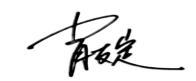 肖友定